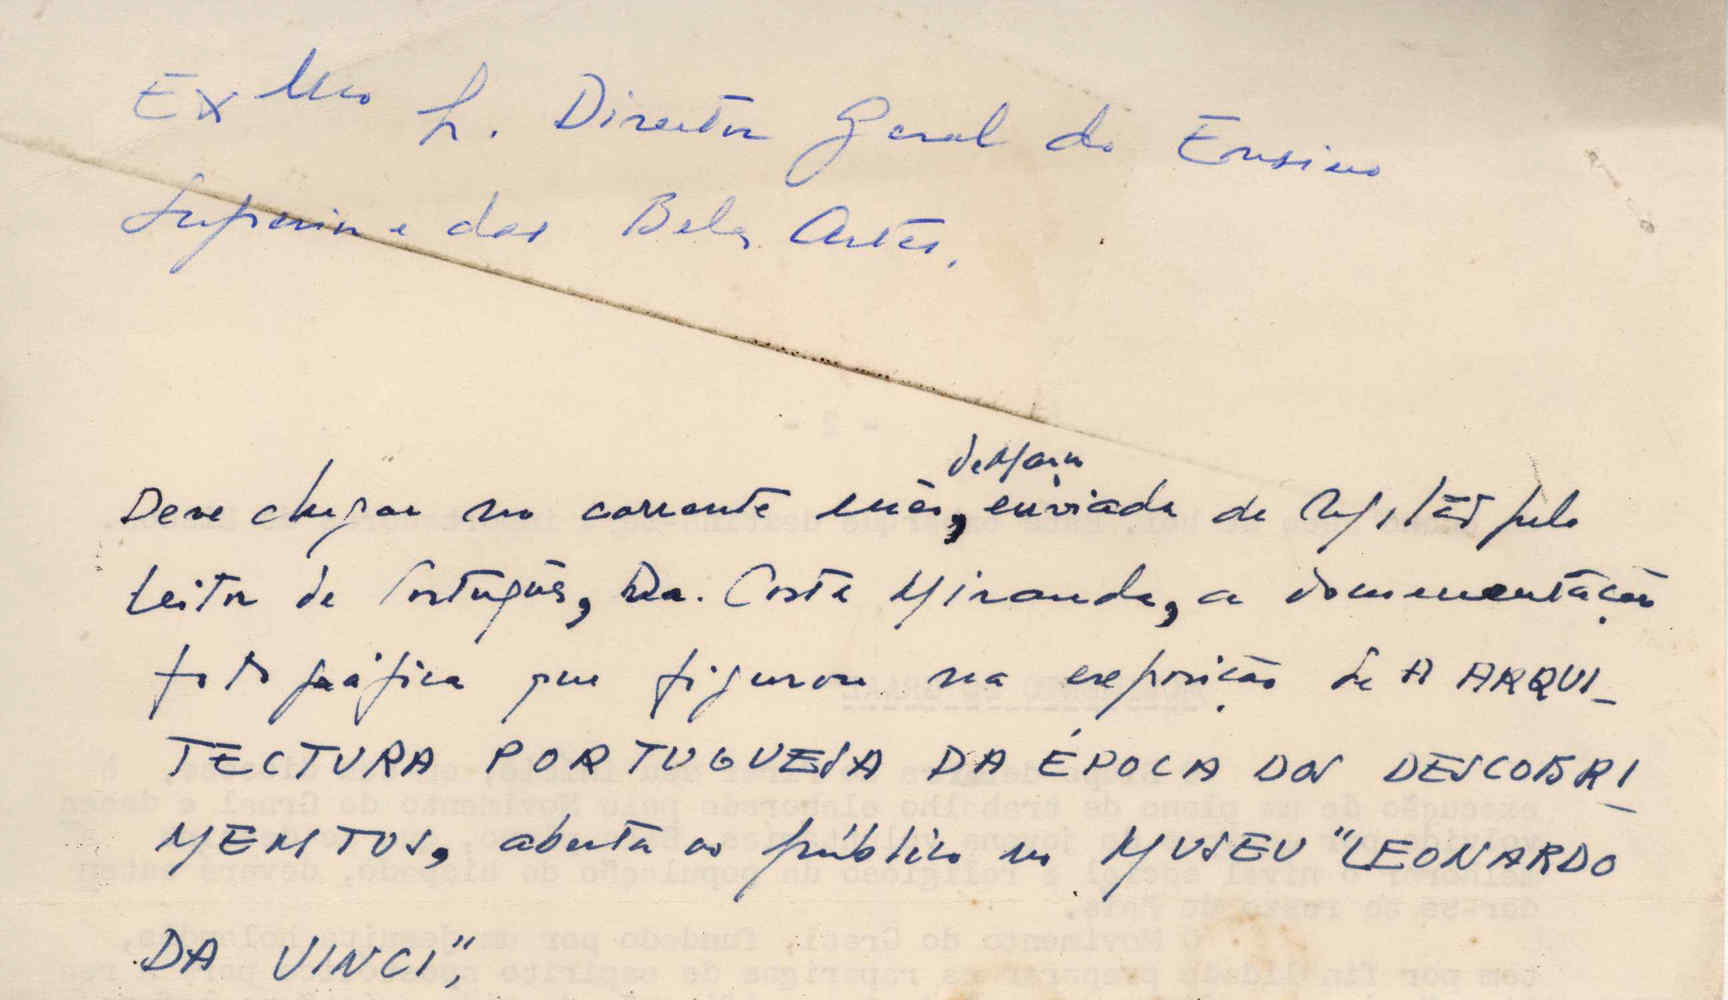 Exmo Sr. Director Geral do Ensino
Superior e das Belas Artes.
Deve chegar no corrente mês, enviada de pelo
Leitor de Português, Dr. Costa Miranda, a documentação
fotográfica que figurou na exposição de A ARQUI_
TECTURA PORTUGUESA DA ÉPOCA DOS DESCOBRI_
MENTOS, aberta ao público no MUSEU "LEONARDO
DA VINCI",